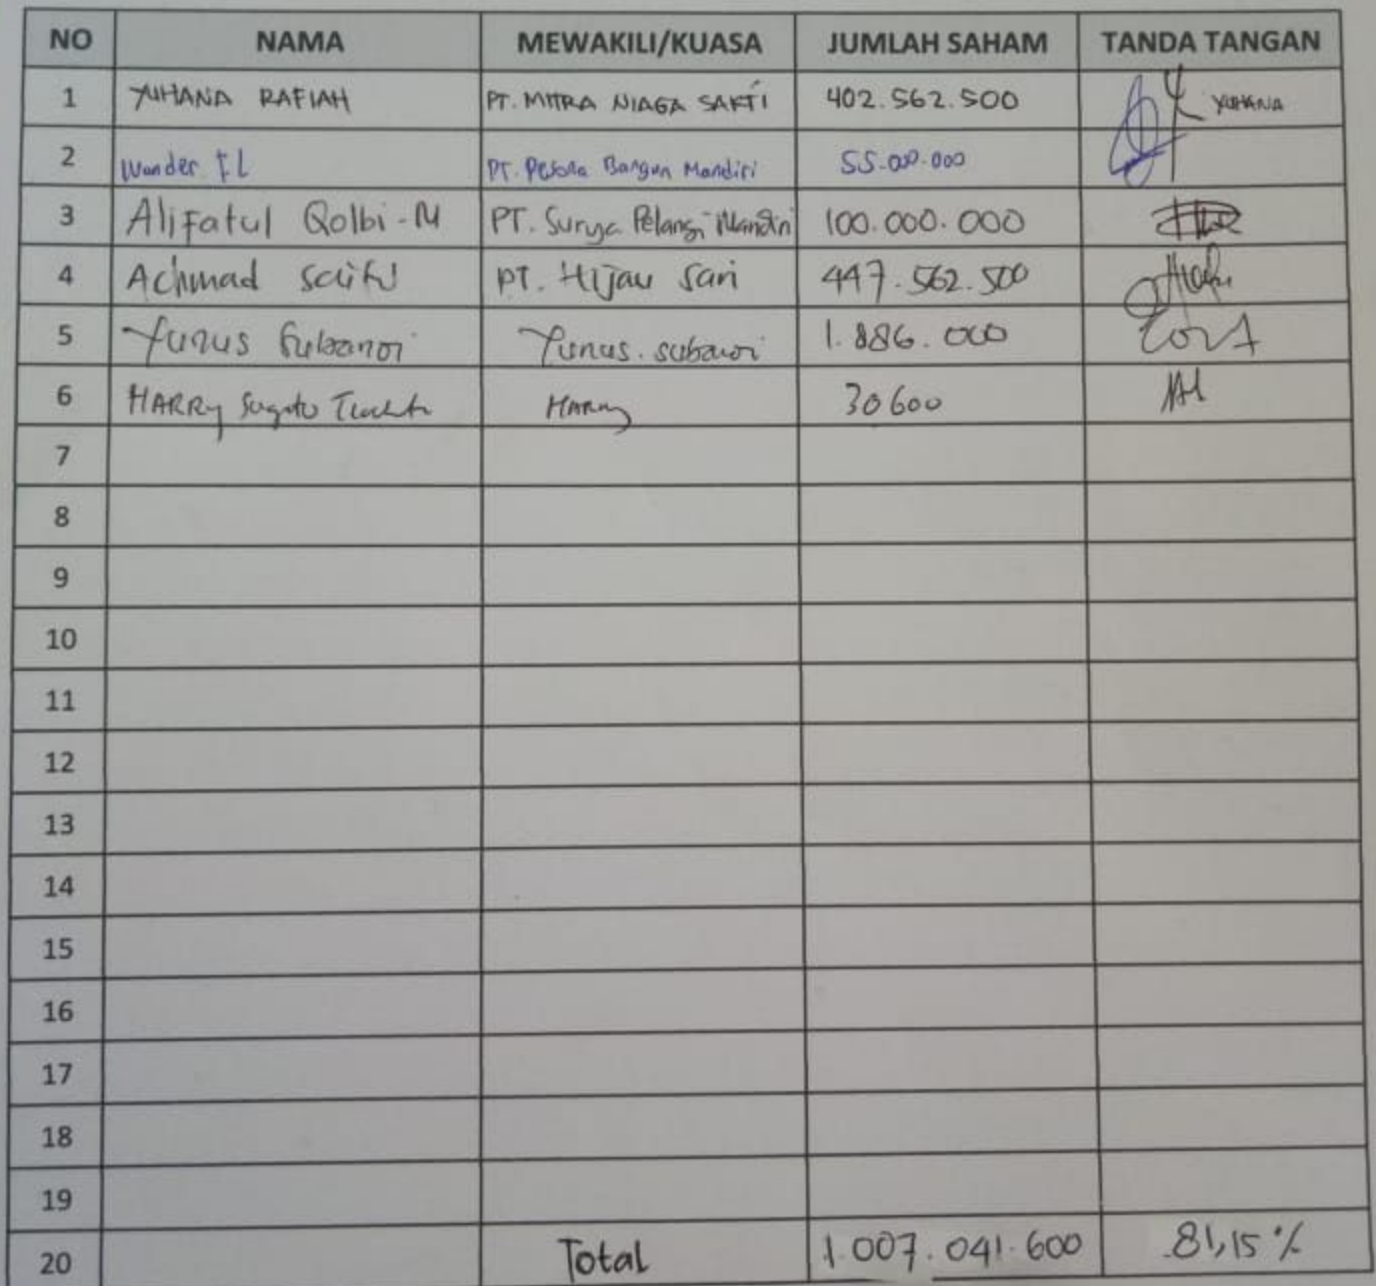 NO NAMA MEWAKILI/KUASA JUMLAH SAHAM TANDA TANGAN
1 YUHANA RAFIAH PT. MITRA NIAGA SAKTI 402.562.500 YUHANA
2 Wander FL PT. Pesona Bangun Mandiri 55.000.000
3 Alifatul Qolbi-M PT. Surya Pelangi Mandiri 100.000.000
4 Achmad Saiful PT. Hijau Sari 447.562.500
5 Yunus Subawoi Yunus. subawoi 1.886.000
6 HARRY Sugito HARRY 30600
7
8
9
10
11
12
13
14
15
16
17
18
19
20 Total 1.007.041.600 81,15%